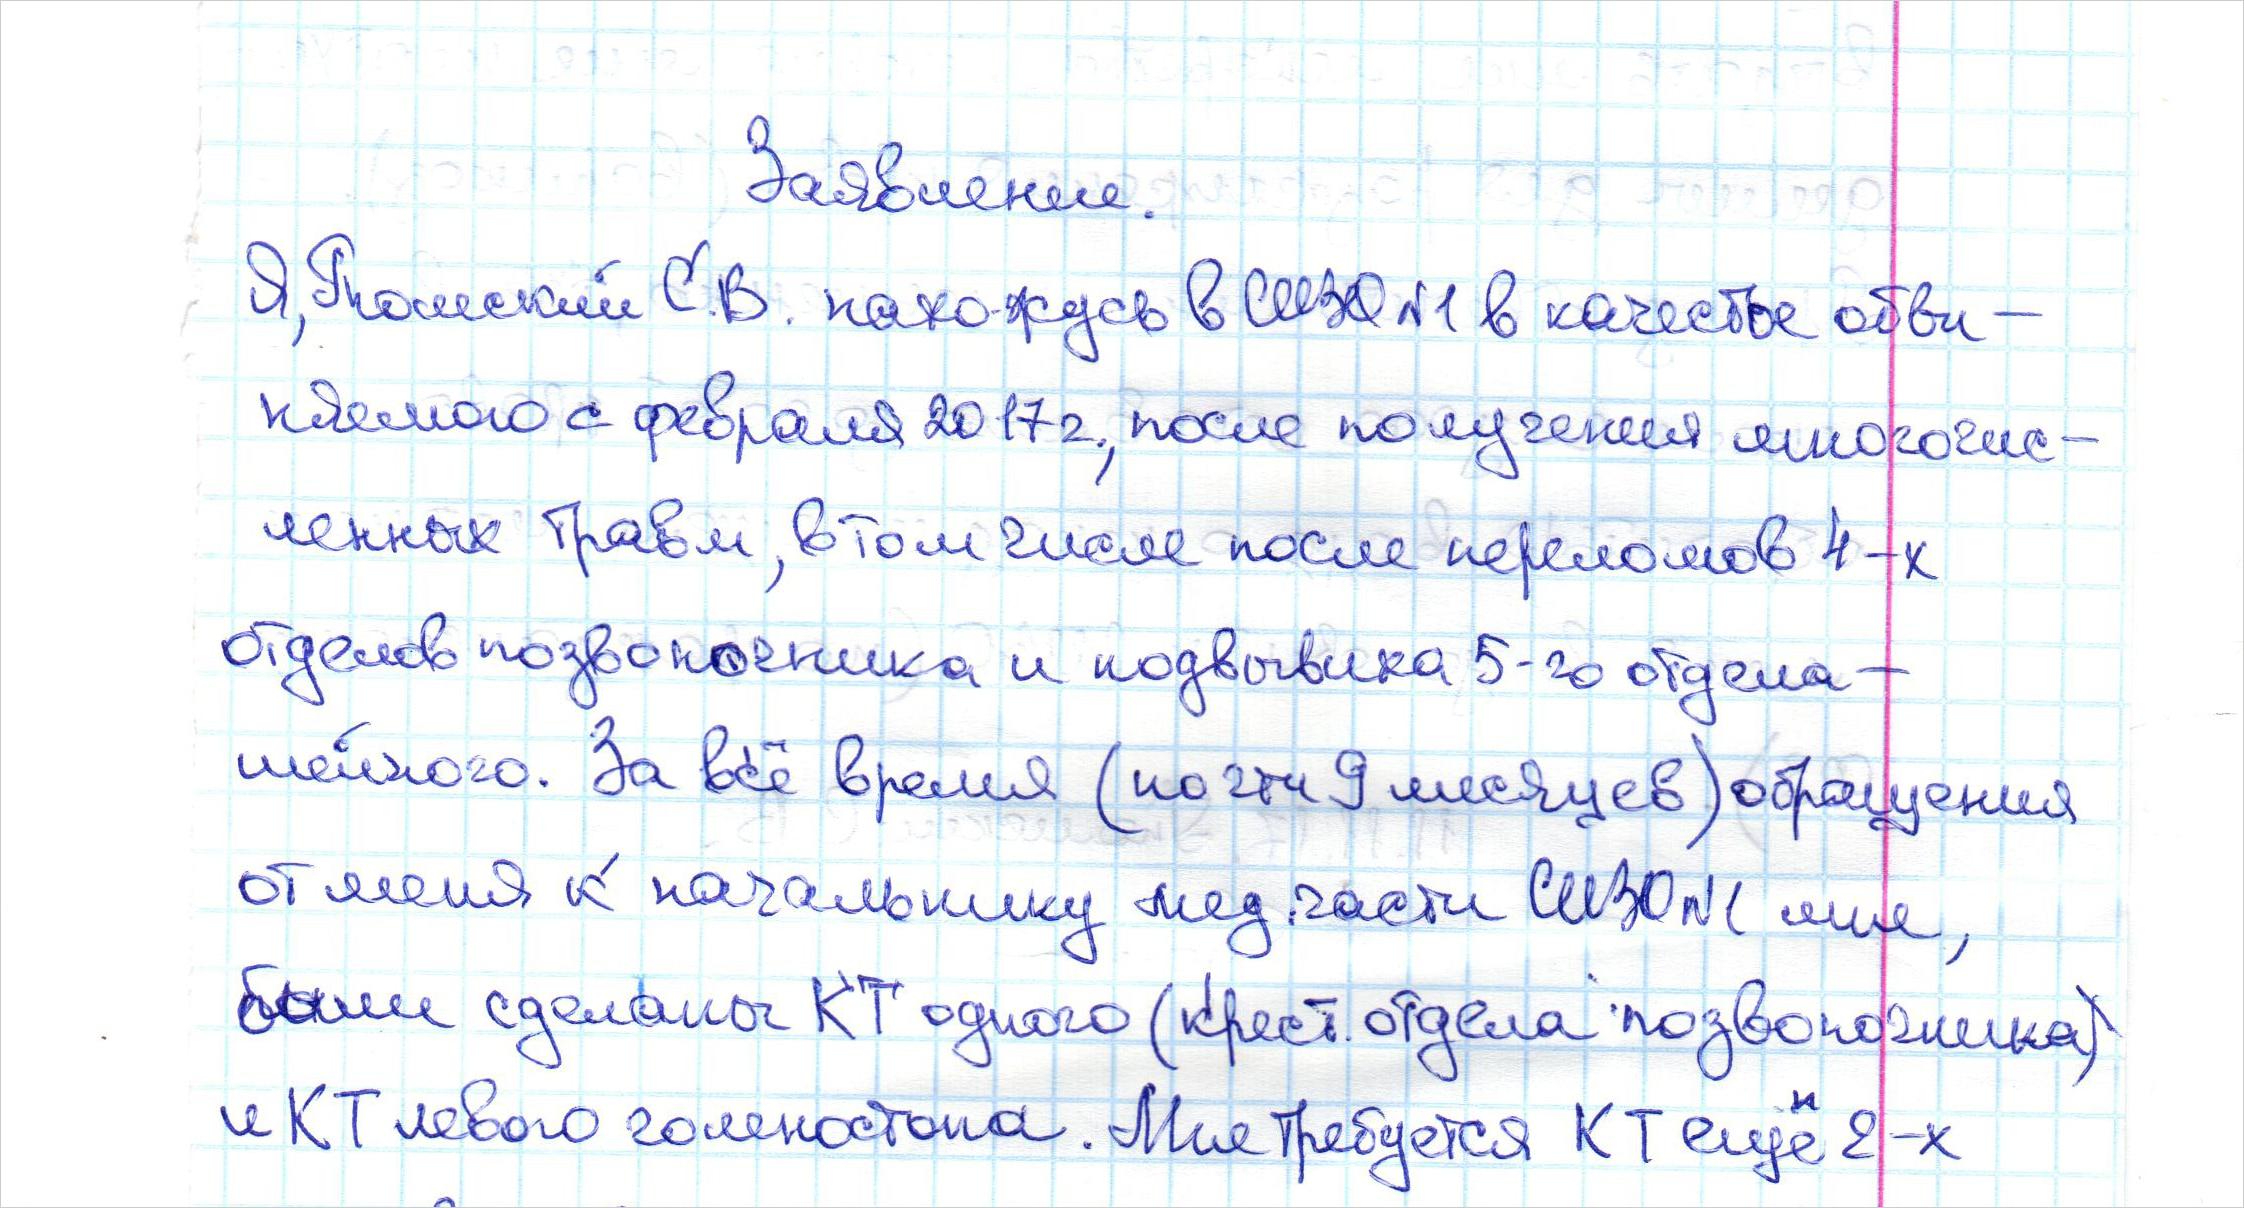 Заявление.
Я, Томский С.В. нахожусь в СИЗО №1 в качестве обви-
няемого с февраля 2017 г., после получения многочис-
ленных травм, в том числе после переломов 4-х
отделов позвоночника и подвывиха 5-го отдела -
шейного. За всё время (почти 9 месяцев) обращения
от меня к начальнику мед. части СИЗО №1 мне,
были сделаны КТ одного (крест. отдела позвоночника)
и КТ левого голеностопа. Мне требуется КТ ещё 2-х